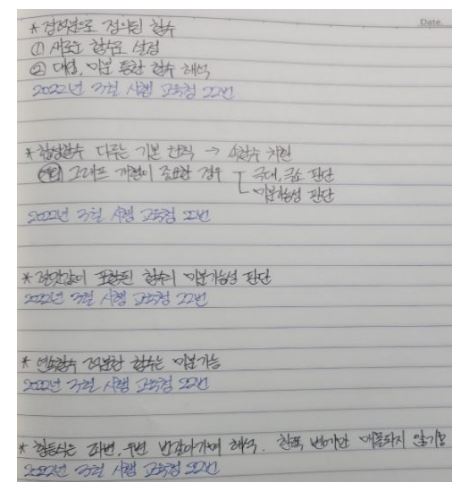 Date.
* 정적분으로 정의된 함수
① 새로운 함수로 설정
② 대입, 미분 통한 함수 해석
2022년 7월 시행 교육청 22번
* 합성함수 다루는 기본 원칙 → 속함수 치환
그래프 개형이 중요한 경우 극대, 극소 판단
미분가능성 판단
2022년 7월 시행 교육청 22번
* 절댓값이 포함된 함수의 미분가능성 판단
2022년 7월 시행 교육청 22번
* 연속함수 적분한 함수는 미분가능
2022년 7월 시행 교육청 22번
* 항등식은 좌변, 우변 번갈아가며 해석. 한쪽 변에만 매몰되지 않기
2022년 7월 시행 교육청 22번